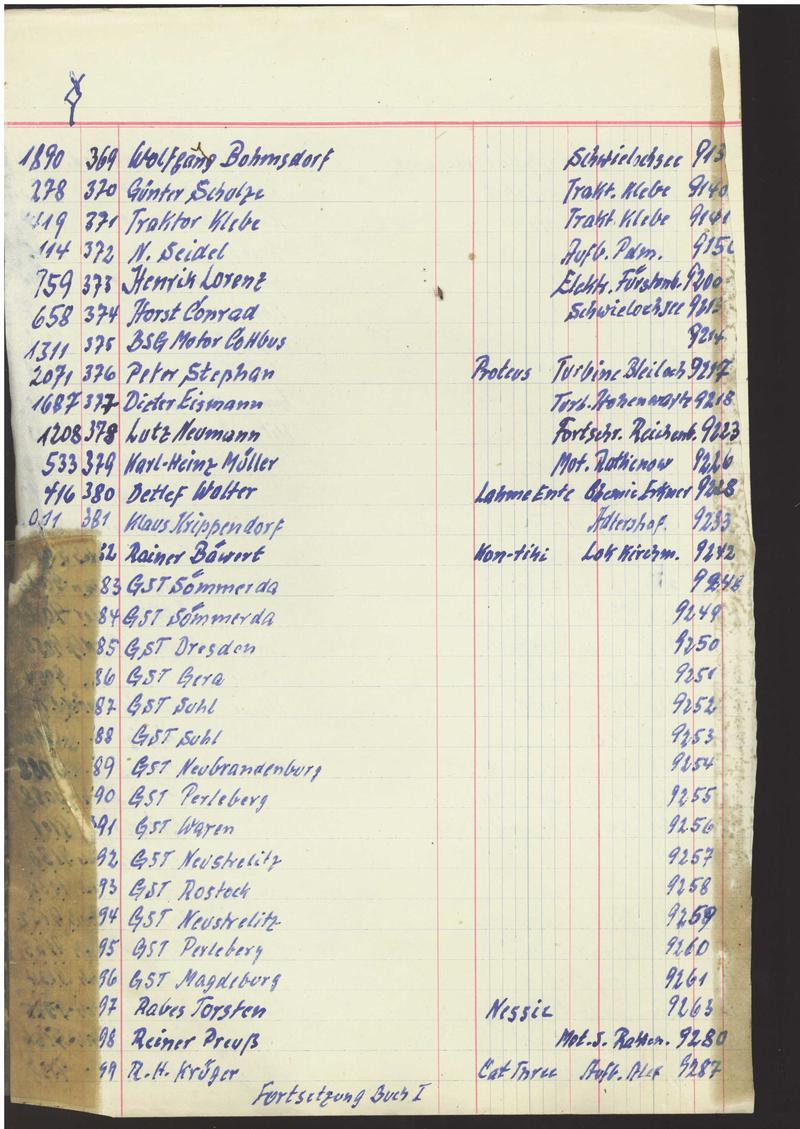 1890 369 Wolfgang Bohmsdorf Schwielochsee 913
278 370 Günter Schulze Trakt. Klebe 9140
419 371 Traktor Klebe Trakt. Klebe 9141
114 372 N. Seidel Aufb. Pdm. 915
759 373 Henrik Lorenz Elektr. Fürstenb. 9200
658 374 Horst Conrad Schwielochsee 9213
1311 375 BSG Motor Cottbus 9214
2071 376 Peter Stephan Proteus Turbine Bleiloch 9217
1687 377 Dieter Eismann Turb. Hohenwarte 9218
1208 378 Lutz Neumann Fortschr. Reichenb. 9223
533 379 Karl-Heinz Müller Mot. Rathenow 9226
416 380 Detlef Walter Lahme Ente Chemie Erkner 9228
381 Klaus Krippendorf Adlershof. 9233
82 Rainer Bäwert Kon-tiki Lok Kirchm. 9242
83 GST Sömmerda 9248
84 GST Sömmerda 9249
85 GST Dresden 9250
86 GST Gera 9251
87 GST Suhl 9252
88 GST Suhl 9253
89 GST Neubrandenburg 9254
90 GST Perleberg 9255
91 GST Waren 9256
92 GST Neustrelitz 9257
93 GST Rostock 9258
94 GST Neustrelitz 9259
95 GST Perleberg 9260
96 GST Magdeburg 9261
97 Rabes Torsten Nessie 9263
98 Reiner Preuß Mot. S. Rathen. 9280
99 R.H. Krüger Cat Three Aufb. Alex 9287
Fortsetzung Buch I